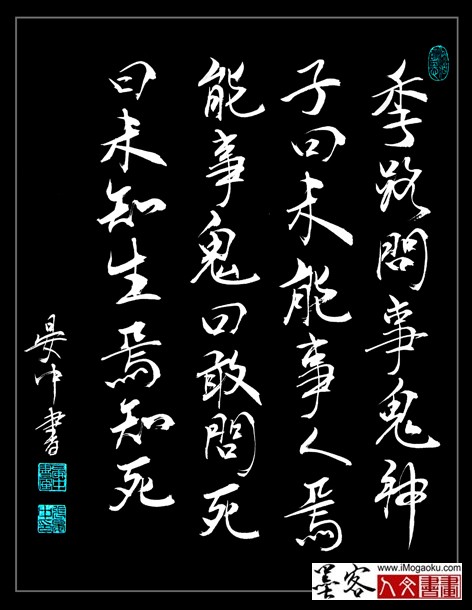 季路問事鬼神
子曰未能事人焉
能事鬼曰敢問死
曰未知生焉知死
晏中書
墨客
www.iMogaoku.com
人文書畫